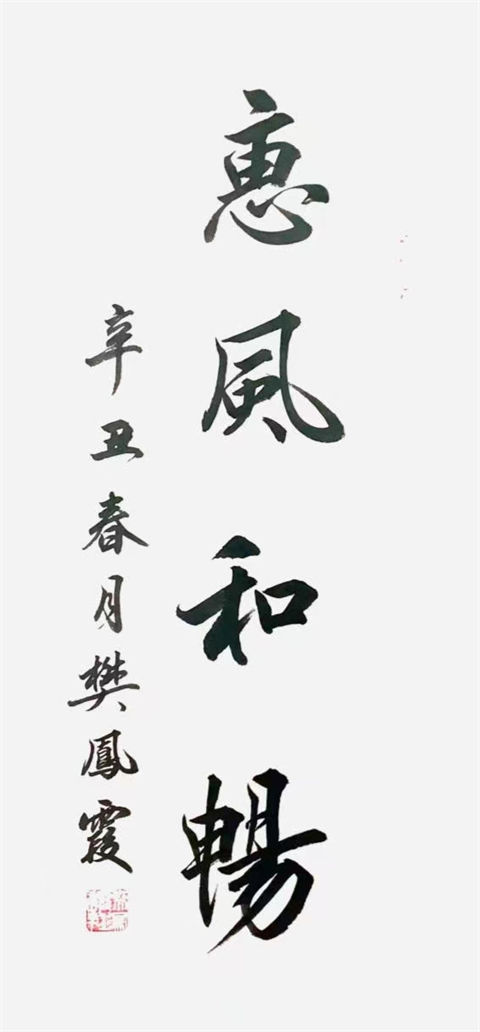 惠風和暢
辛丑春月樊鳳霞